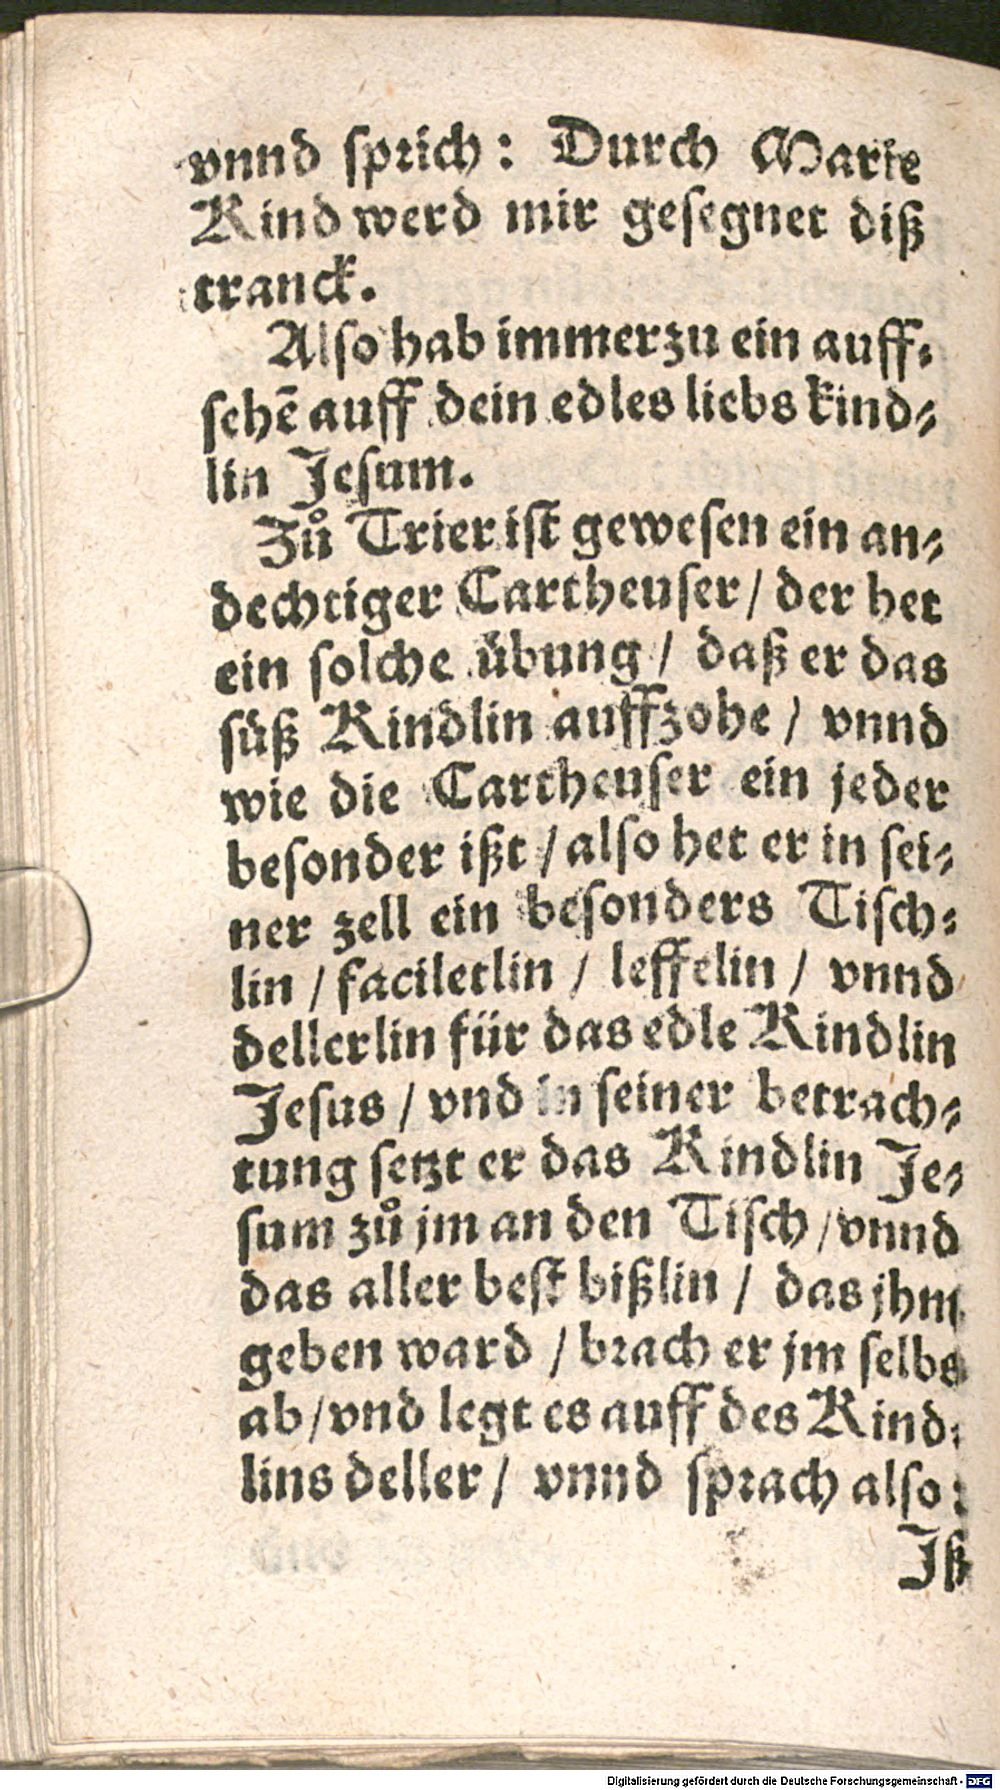 vnnd sprich: Durch Marie
Kind werd mir gesegnet diß
tranck.
Also hab immerzu ein auff-
sehẽ auff dein edles liebs kind-
lin Jesum.
Zů Trier ist gewesen ein an-
dechtiger Cartheuser / der het
ein solche übung / daß er das
süß Kindlin auffzohe / vnnd
wie die Cartheuser ein jeder
besonder ißt / also het er in sei-
ner zell ein besonders Tisch-
lin / faciletlin / leffelin / vnnd
dellerlin für das edle Kindlin
Jesus / vnd in seiner betrach-
tung setzt er das Kindlin Je-
sum zů jm an den Tisch / vnnd
das aller best bißlin / das jhm
geben ward / brach er jm selbs
ab / vnd legt es auff des Kind-
lins deller / vnnd sprach also:
Jß
Digitalisierung gefördert durch die Deutsche Forschungsgemeinschaft - DFG